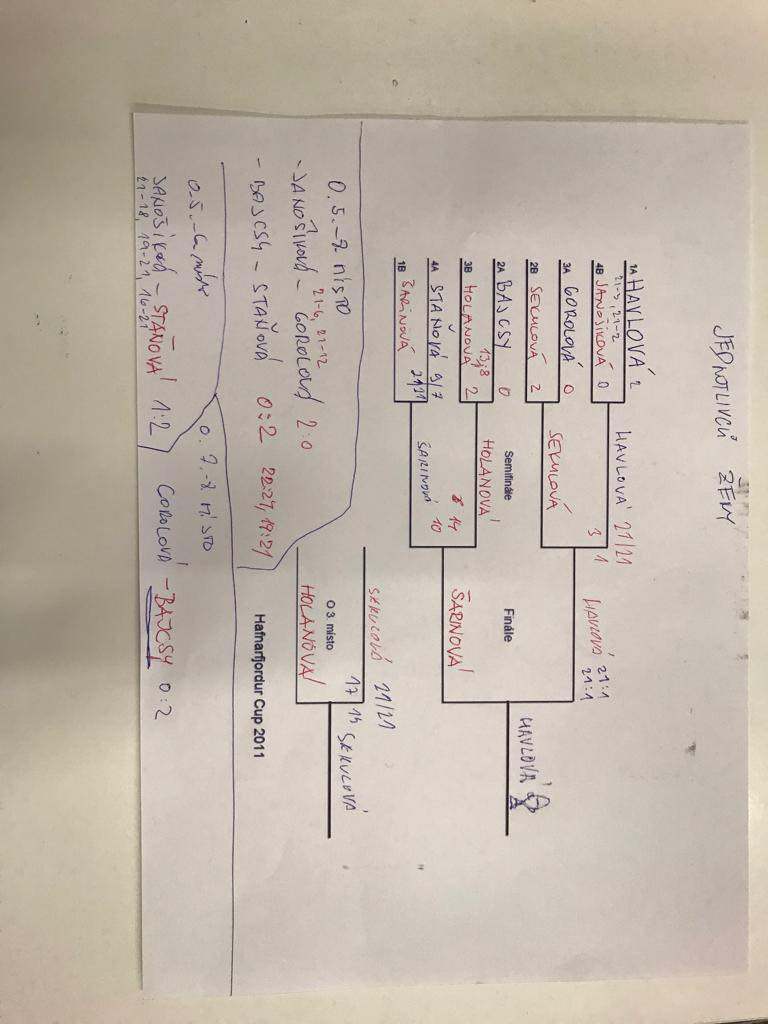 JEDNOTLIVCŮ ŽENY
1A HAVLOVÁ 2
21-3, 21-2
4B JANOŠÍKOVÁ 0
3A GOROLOVÁ 0
2B SEKULOVÁ 2
2A BAJCSY 0
13,8
3B HOLANOVÁ 2
4A STAŇOVÁ 9/7
1B ŠARINOVÁ 21/21
HAVLOVÁ 21/21
3 1
SEKULOVÁ
Semifinále
HOLANOVÁ
8 14
ŠARINOVÁ 10
HAVLOVÁ 21:1
21:1
Finále
ŠARINOVÁ
HAVLOVÁ
SEKULOVÁ 21/21
O 3. místo
17 15
HOLANOVÁ
SEKULOVÁ
Hafnarfjordur Cup 2011
O 5.-8 MÍSTO
21-6, 21-12
- JANOŠÍKOVÁ - GOROLOVÁ 2:0
- BAJCSY - STAŇOVÁ 0:2 22:24, 17:21
O 5.-6 místo
JANOŠÍKOVÁ - STAŇOVÁ 1:2
21-18, 19-21, 16-21
O 7.-8 MÍSTO
GOROLOVÁ - BAJCSY 0:2